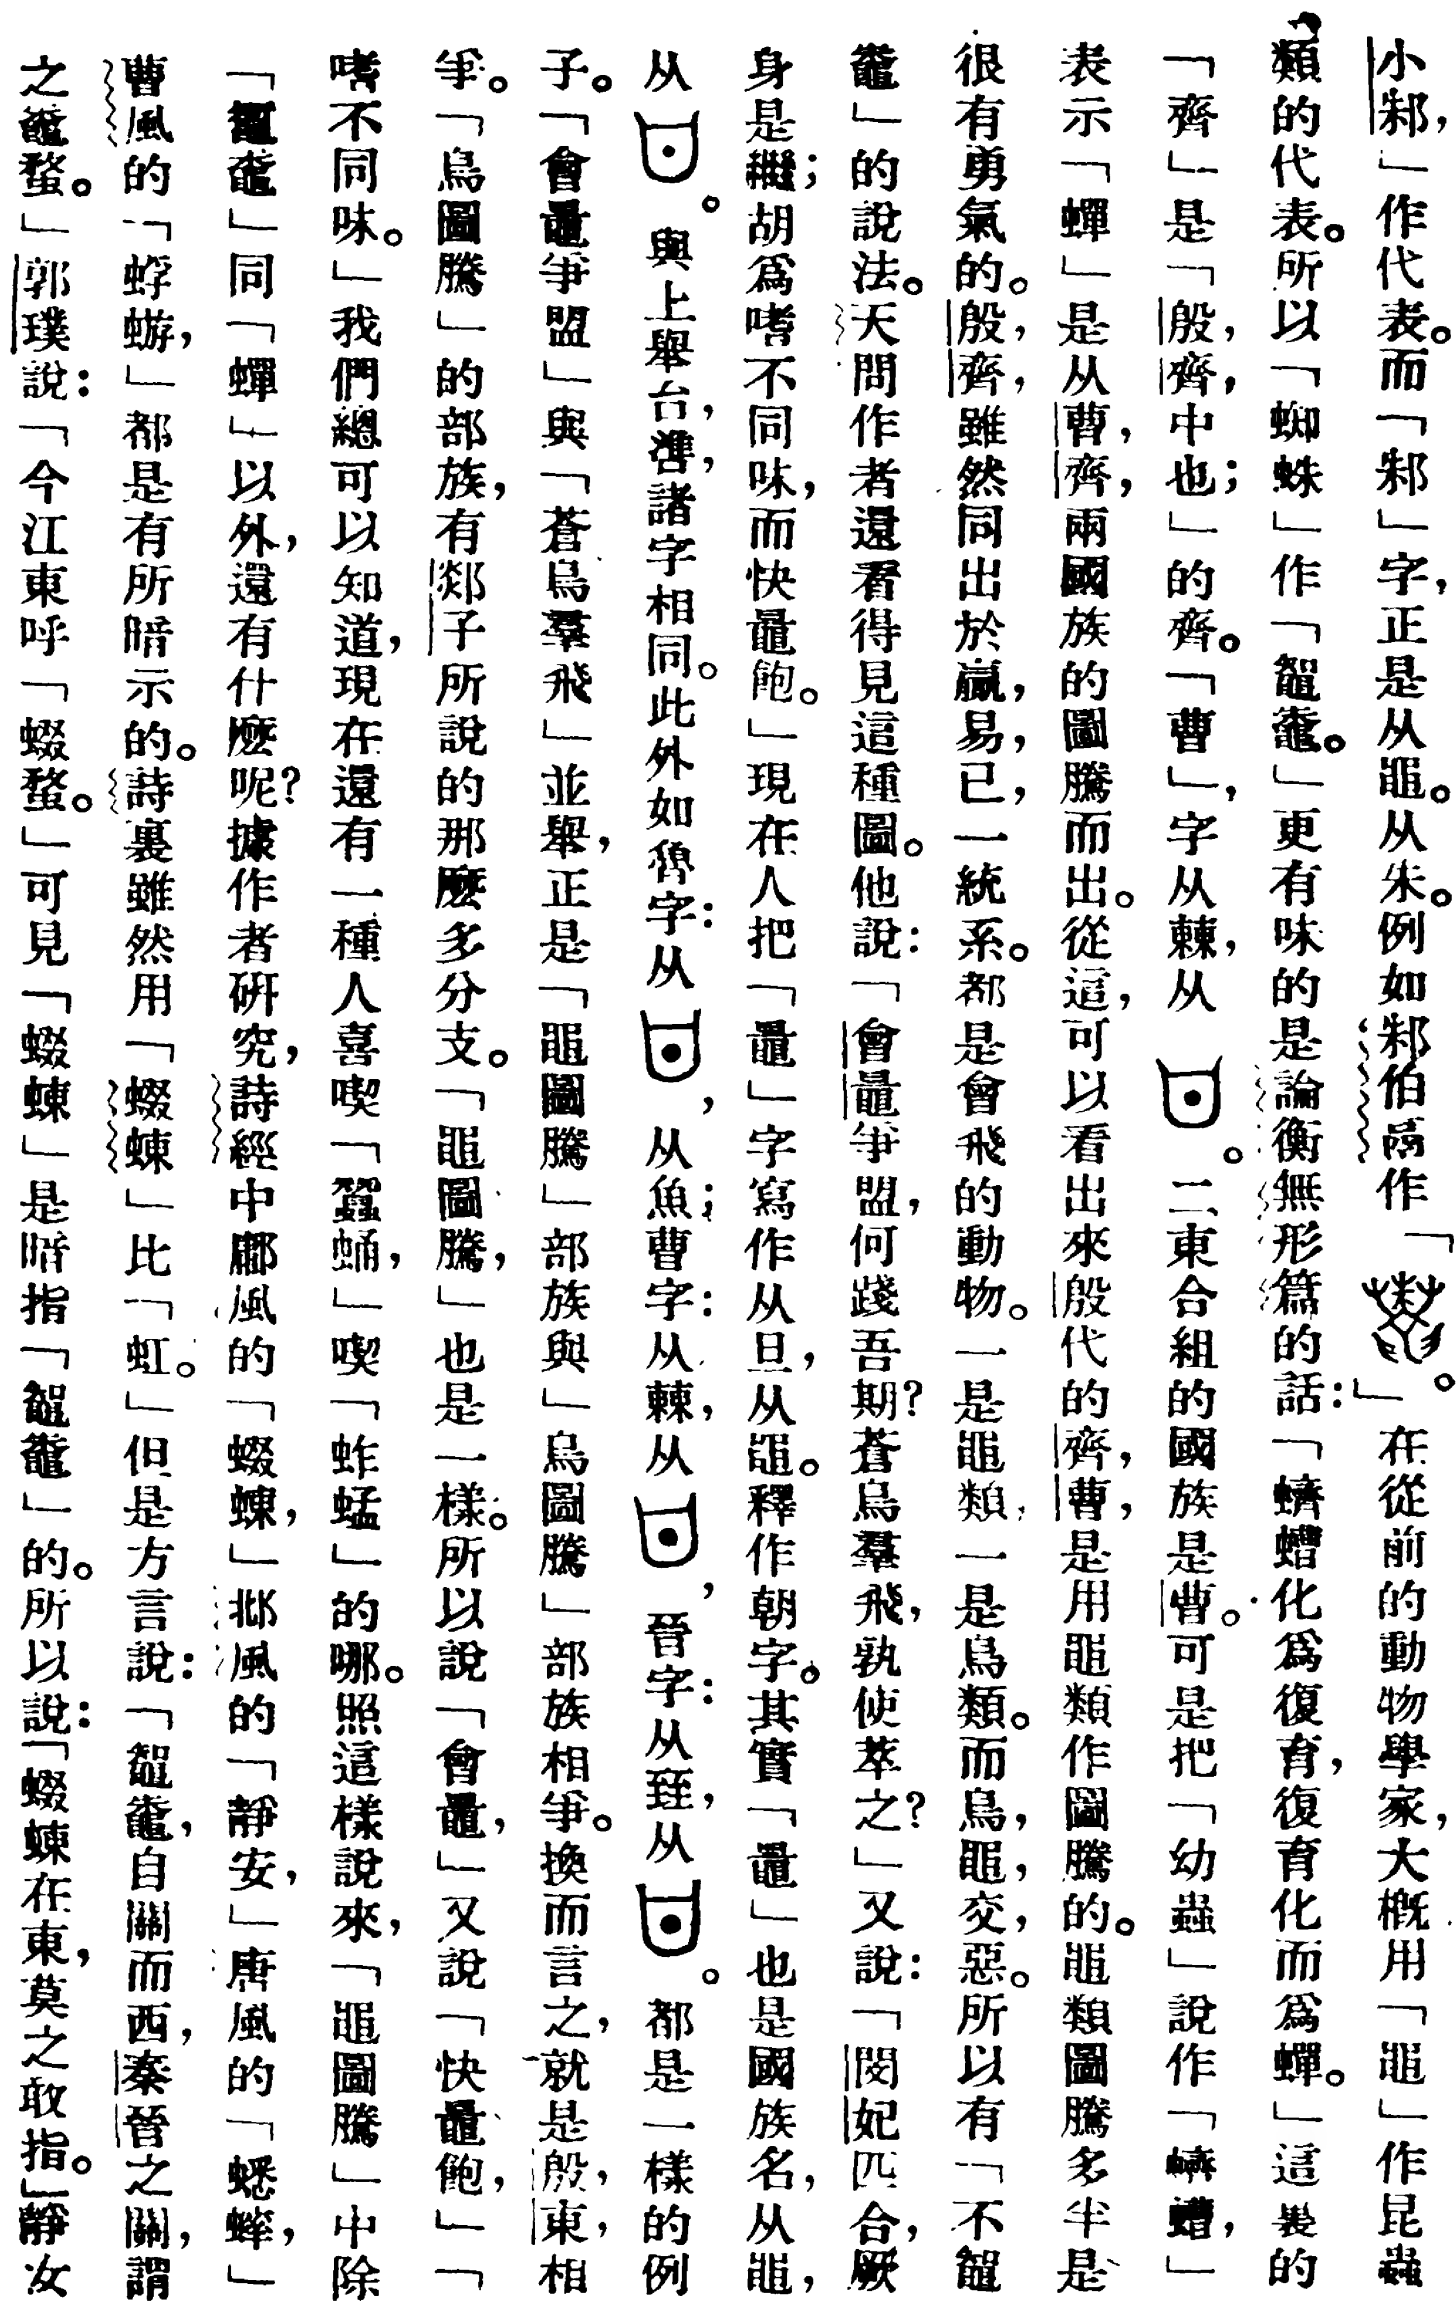 小邾，」作代表。而「邾」字，正是从黽。从朱。例如邾伯鬲作「。」在從前的動物學家，大概用「黽」作昆蟲
類的代表。所以「蜘蛛」作「鼅鼄。」更有味的是論衡無形篇的話：「蠐螬化爲復育，復育化而爲蟬。」這裏的
「齊」是「殷，齊，中也；」的齊。「曹」，字从㯥，从。二東合組的國族是曹。可是把「幼蟲」說作「蠐螬，」
表示「蟬」是从曹，齊，兩國族的圖騰而出。從這，可以看出來殷代的齊，曹，是用黽類作圖騰的。黽類圖騰多半是
很有勇氣的。殷，齊，雖然同出於嬴，易，已，一統系。都是會飛的動物。一是黽類，一是鳥類。而鳥，黽，交，惡。所以有「不鼅
鼄」的說法。天問作者還看得見這種圖。他說：「會鼂爭盟，何踐吾期？蒼鳥羣飛，孰使萃之？」又說：「閔妃匹合，厥
身是繼；胡爲嗜不同味，而快鼂飽。」現在人把「鼂」字寫作从旦，从黽。釋作朝字。其實「鼂」也是國族名，从黽，
从。與上舉台，譻，諸字相同。此外如魯字：从，从魚；曹字：从㯥，从，晉字：从臸，从。都是一樣的例
子。「會鼂爭盟」與「蒼鳥羣飛」並舉，正是「黽圖騰」部族與」鳥圖騰」部族相爭。換而言之，就是殷，東，相
爭。「鳥圖騰」的部族，有郯子所說的那麼多分支。「黽圖騰，」也是一樣。所以說「會鼂，」又說「快鼂飽，」「
嗜不同味。」我們總可以知道，現在還有一種人喜喫「蠶蛹，」喫「蚱蜢」的哪。照這樣說來，「黽圖騰」中除
「鼅鼄」同「蟬」以外，還有什麼呢？據作者研究，詩經中鄘風的「蝃蝀，」邶風的「靜安，」唐風的「蟋蟀，」
曹風的「蜉蝣，」都是有所暗示的。詩裏雖然用「蝃蝀」比「虹。」但是方言說：「鼅鼄，自關而西，秦晉之關，謂
之鼄蝥。」郭璞說：「今江東呼「蝃蝥。」可見「蝃蝀」是暗指「鼅鼄」的。所以說：「蝃蝀在東，莫之敢指。」靜女